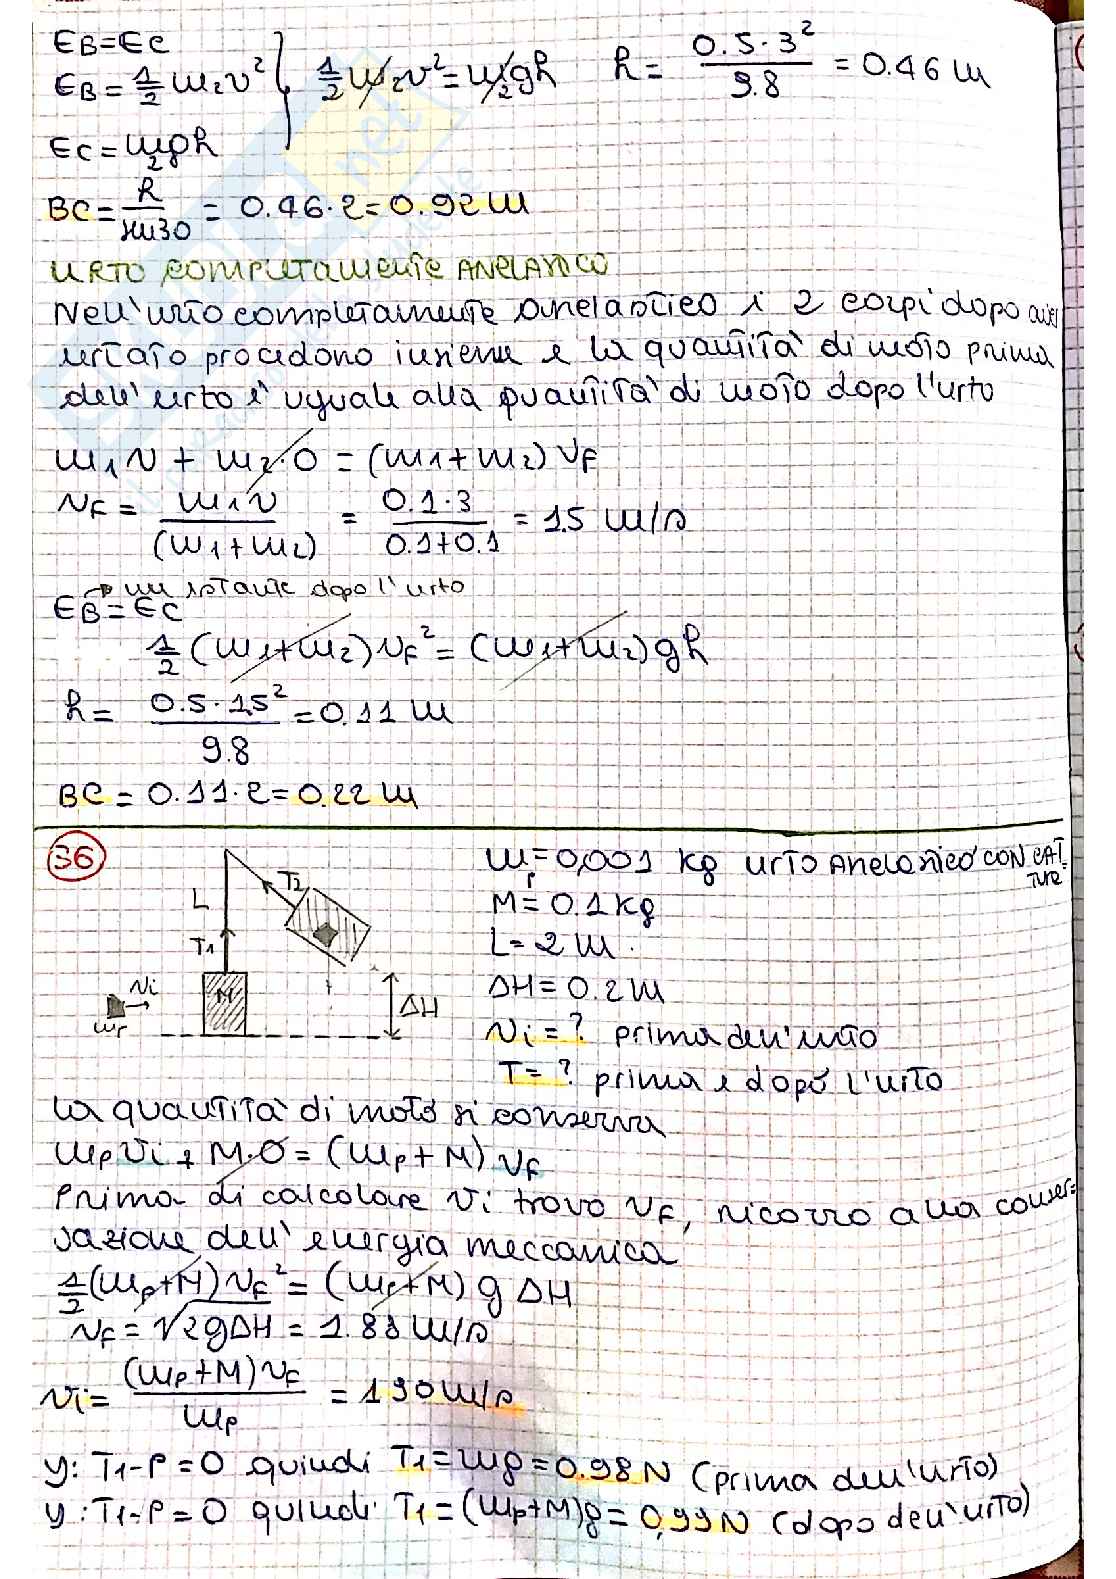 EB=EC
EB = 1/2 m₂v² } 1/2 m₂v² = m₂gh   h = 0.5·3²/9.8 = 0.46 m
EC = m₂gh
BC = h/sin30 = 0.46·2 = 0.92 m
URTO COMPLETAMENTE ANELASTICO
Nell'urto completamente anelastico i 2 corpi dopo aver
urtato procedono insieme e la quantità di moto prima
dell'urto è uguale alla quantità di moto dopo l'urto
m₁v + m₂·0 = (m₁+m₂) vF
vF = m₁v/(m₁+m₂) = 0.1·3/0.1+0.1 = 1.5 m/s
→ un istante dopo l'urto
EB = EC
1/2 (m₁+m₂) vF² = (m₁+m₂) gh
h = 0.5·1.5²/9.8 = 0.11 m
BC = 0.11·2 = 0.22 m
36
mp = 0,001 kg urto anelastico CON CAT-
TURA
M = 0.1 kg
L = 2 m
ΔH = 0.2 m
vi = ? prima dell'urto
T = ? prima e dopo l'urto
L
T1
T2
vi
mp
M
ΔH
La quantità di moto si conserva
mp vi + M·0 = (mp+M) vF
Prima di calcolare vi trovo vF, ricorro alla conser=
vazione dell'energia meccanica
1/2 (mp+M) vF² = (mp+M) g ΔH
vF = √2gΔH = 1.88 m/s
vi = (mp+M)vF/mp = 190 m/s
y: T1-P = 0 quindi T1 = mg = 0.98 N (prima dell'urto)
y: T1-P = 0 quindi T1 = (mp+M)g = 0,99 N (dopo dell'urto)